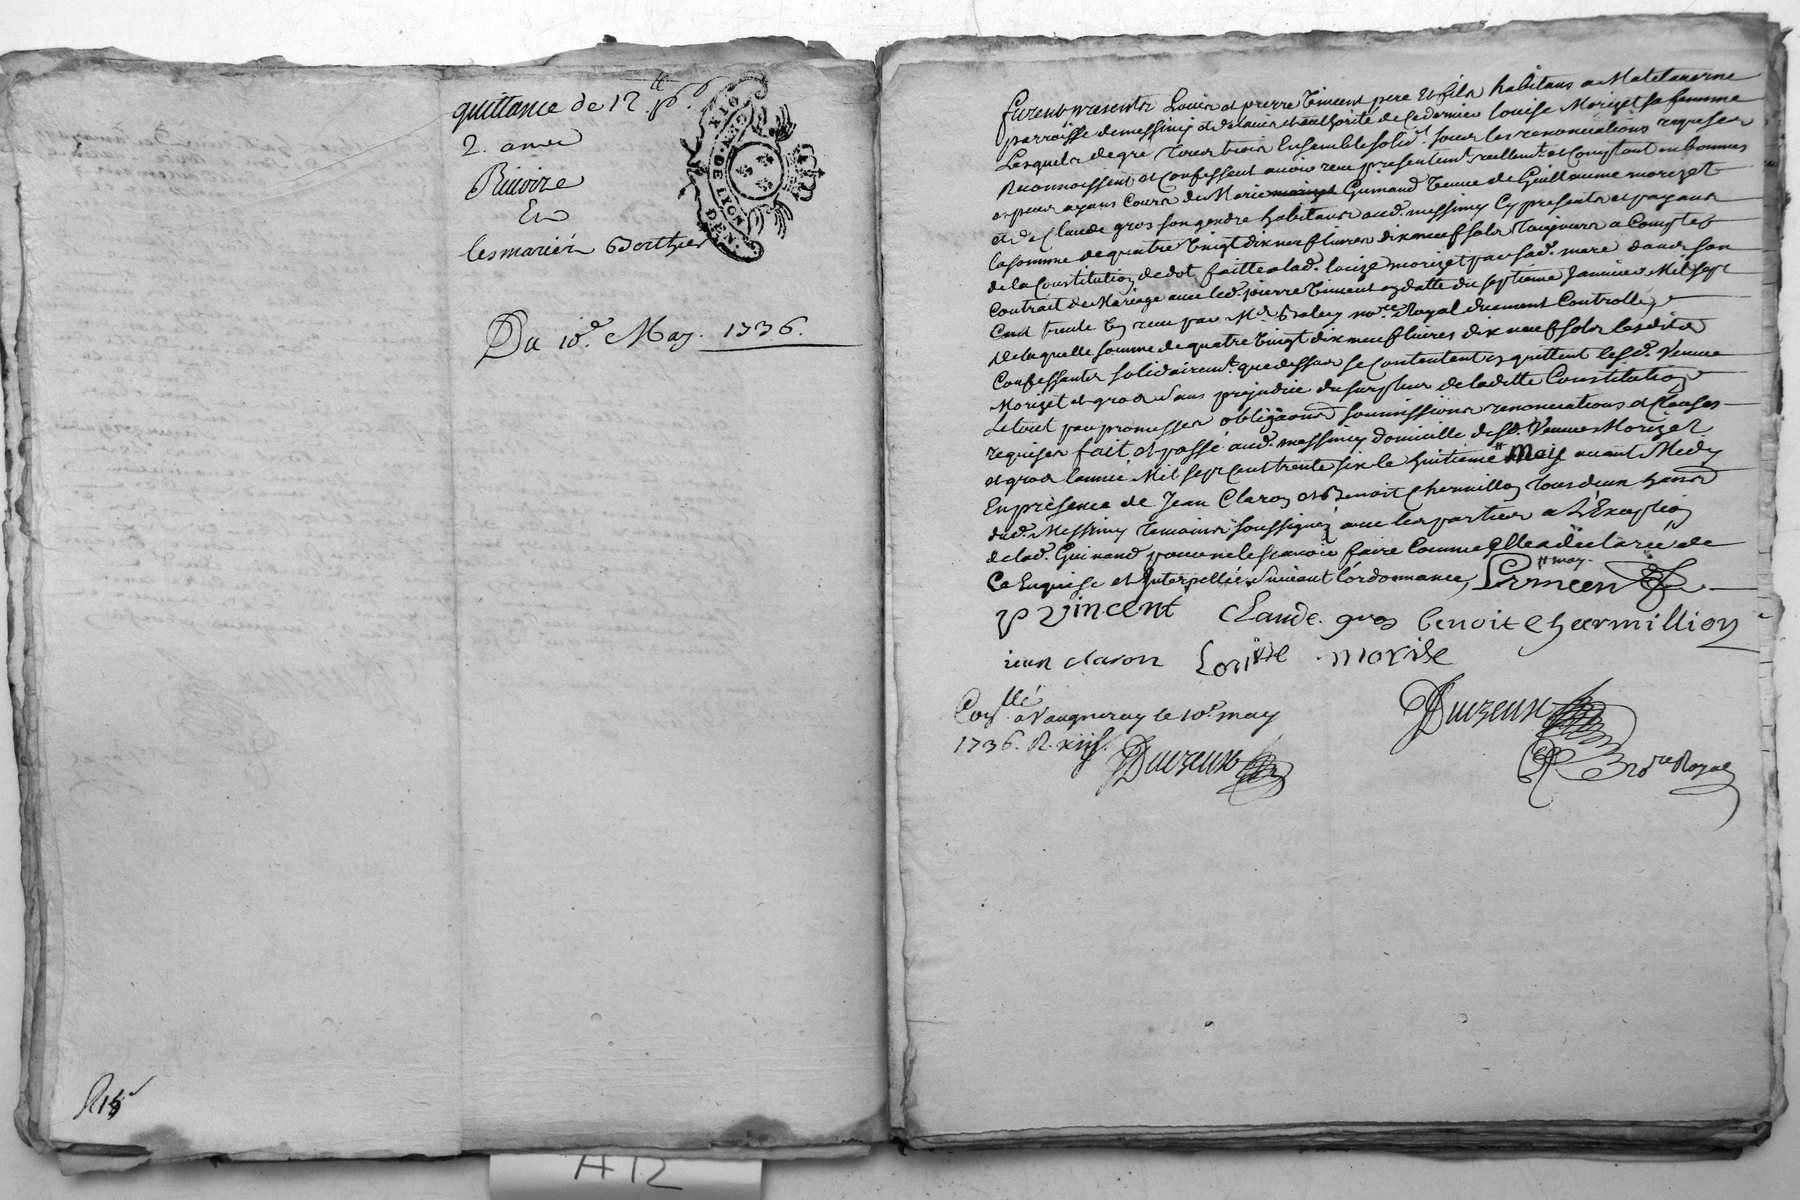 quittance de 12 ₶ 6 s
2. a me
Riuoire
Et
les mariés Berthier
Du 10e. May. 1736.
GEN. DE LYON
R 15 s
A 12
furent presents Louis et pierre Vincent pere et fils habitans a Malataverne
parroisse de messimy et de lauis et authorité de ce dernier louise Morizet sa femme
Lesquels de gré tous trois Ensemble solid.t sous les renonciations requises
Reconnoissent et Confessent auoir receu présentemt. reellemt. et Comptant en bonnes
especes ayans Cours de Marie morizet Guinand veuue de Guillaume morizet
et de Claude gros son gendre habitans aud. messimy Cy presents et payans
la somme de quatre Vingt dix neuf liures dix neuf sols toujours a Compte
de la Constitution de dot faitte a lad. louize morizet par sad. mere dans son
Contrait de Mariage auec led. pierre Vincent en datte du septieme Januier Mil sept
Cent trente receu par Me nore. Royal duement Controllé
de laquelle somme de quatre Vingt dix neuf liures dix neuf sols lesdits
Confessants solidairemt. que dessus se Contentent et quittent lesd. Veuue
Morizet et gros sans préjudice du surplus de laditte Constitution
Le tout par promesses obliga͠ons soumissions renonciations et Clauses
requises fait et passé aud. messimy domicille desd. Veuue Morizet
et gros l'année Mil sept Cent trente six le huitieme # May auant Midy
En présence de Jean Claron et Benoit Chermillon tous deux
dud. Messimy temoins soussignéz auec les parties a L'Exception
de lad. Guinand pour ne le scauoir faire Comme Elle a déclaré de
Ce Enquise et Interpellée suiuant l'ordonnance, # may. L vincent
p vincent Claude. gros benoit Chermillion
iean claron Louise morise
Conllé a Vaugneray le 10e may
1736. R. xii s. Duizeux
Duizeux
nore Royal